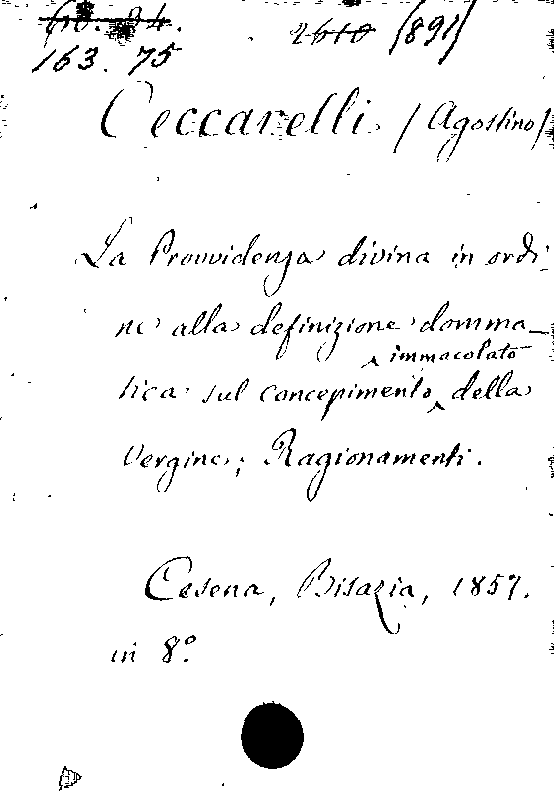 163. 75
2610 (891)
Ceccarelli (Agostino)
La Provvidenza divina in ordi-
ne alla definizione domma-
tica sul concepimento immacolato della
Vergine; Ragionamenti.
Cesena, Bisazia, 1857.
in 8º